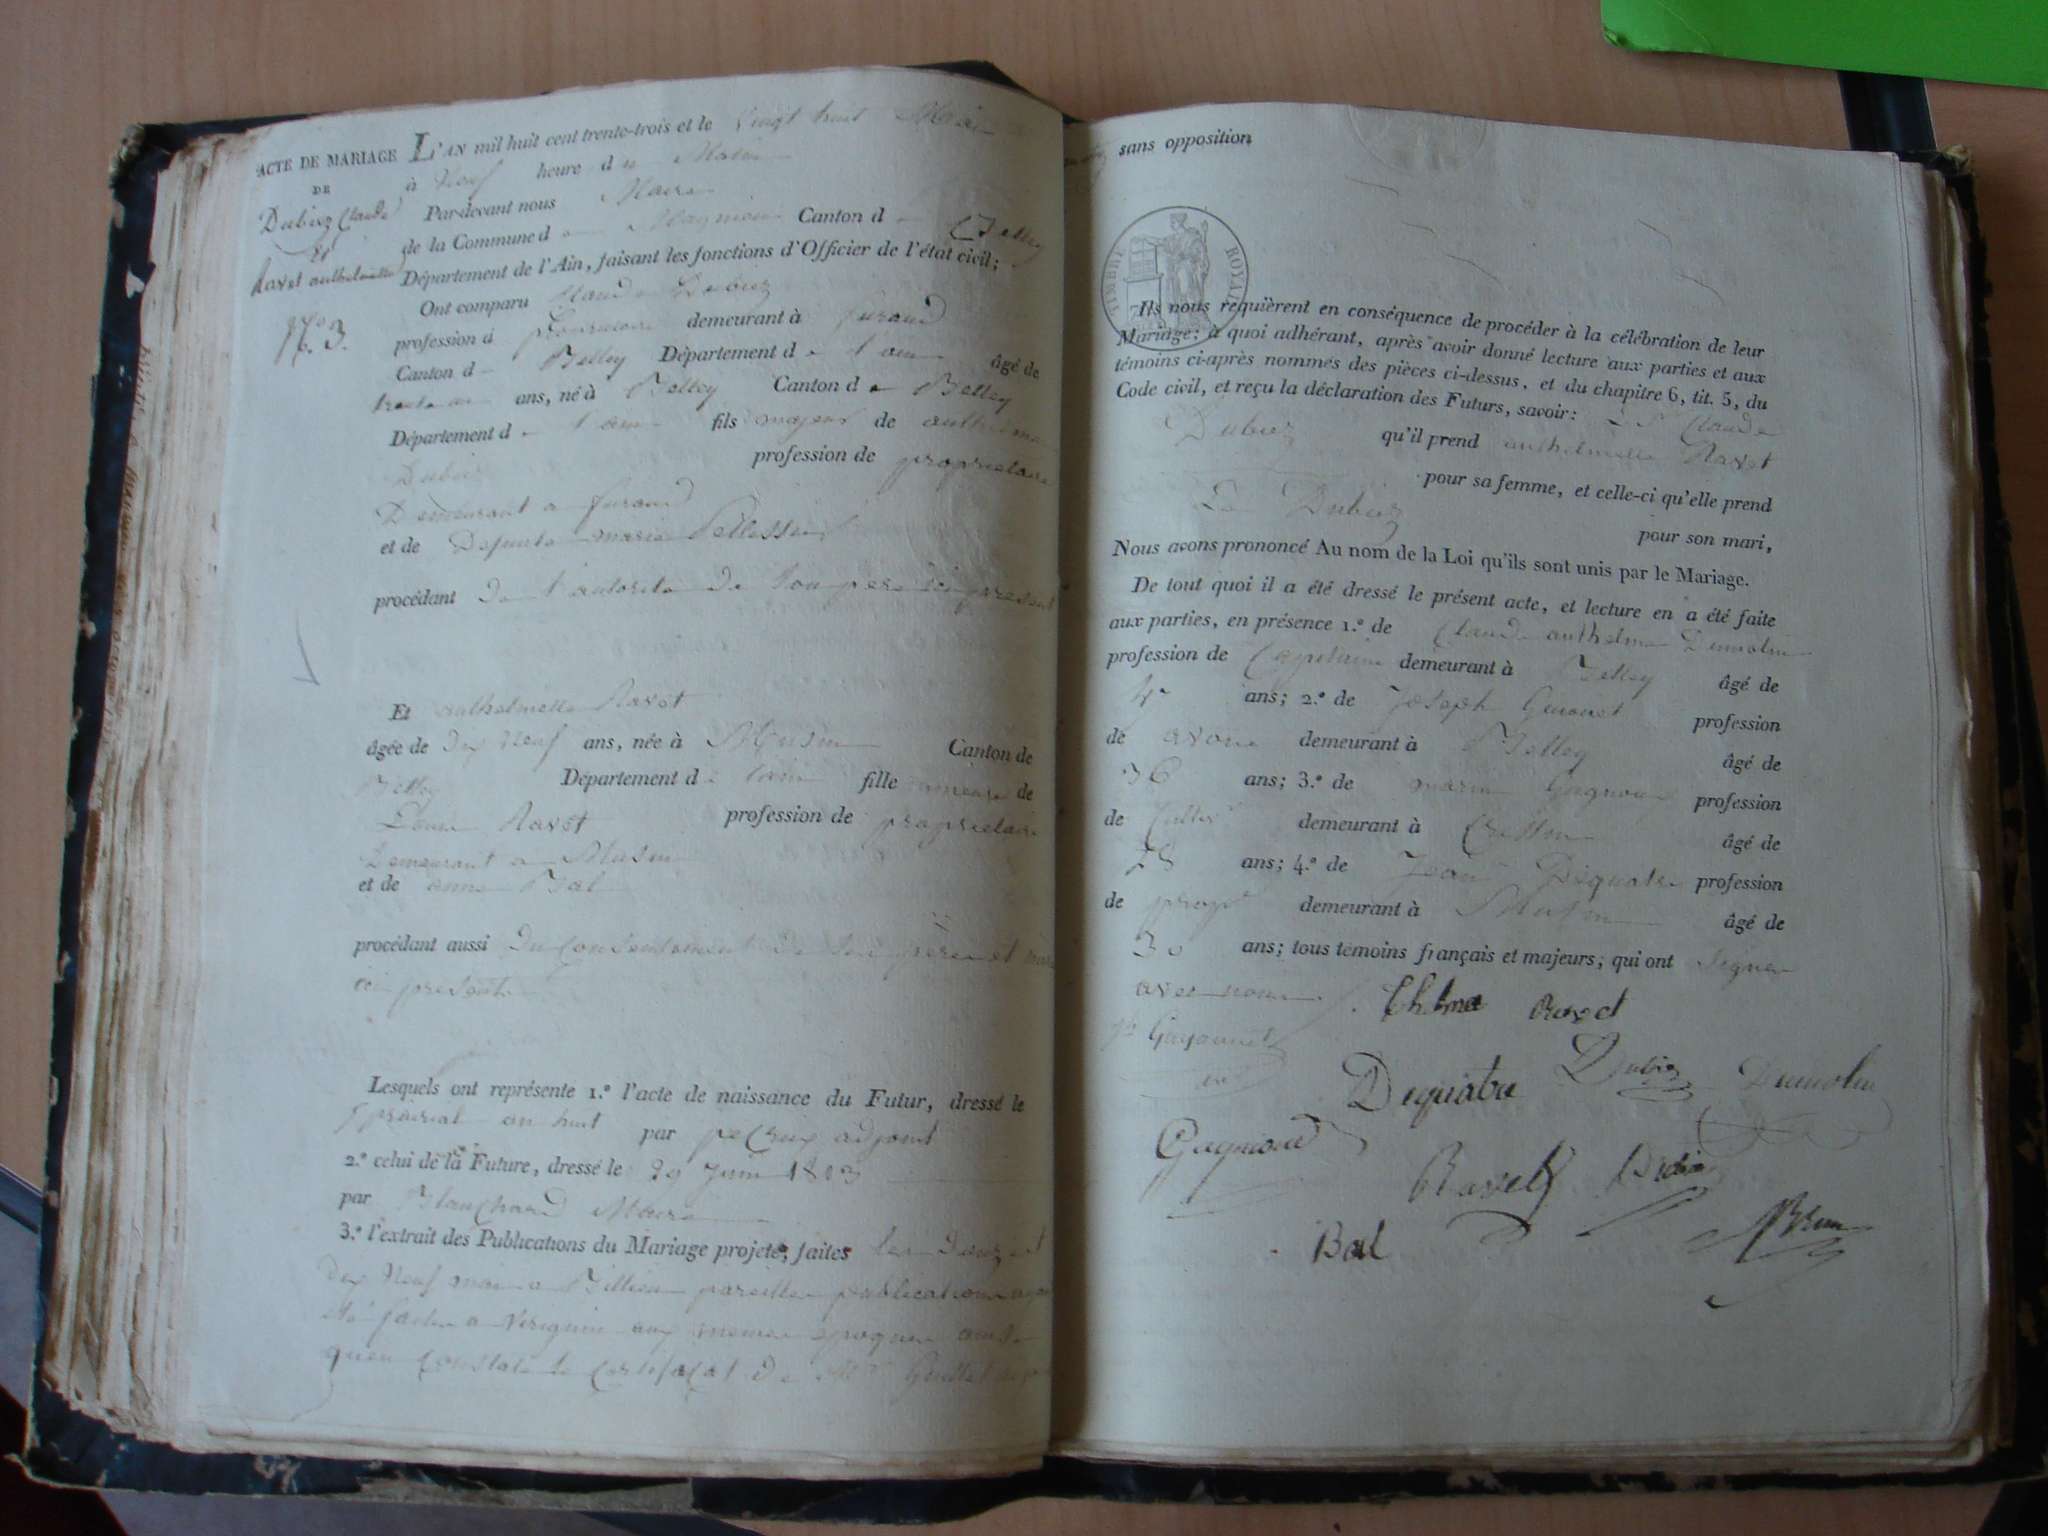 ACTE DE MARIAGE L'AN mil huit cent trente-trois et le Vingt huit Mai
DE
à Neuf heure du Matin
Dubiez Claude
Par-devant nous Maire
Et
de la Commune d Canton d Belley
Ravet anthelmette
Département de l'Ain, faisant les fonctions d'Officier de l'état civil;
N.º 3.
Ont comparu Claude Dubiez
profession d demeurant à furand
Canton d Belley Département d l'ain âgé de
ans, né à Belley Canton de Belley
Département d l'ain fils majeur de anthelme
Dubiez profession de proprietaire
Demeurant a furand
et de Defunte marie Pelissier
procédant De l'autorité De Son pere ici present
Et anthelmette Ravet
âgée de Dix Neuf ans, née à Musin Canton de
Belley Département d l'ain fille mineure de
Louis Ravet profession de proprietaire
Demeurant a Musin
et de anne Bal
procédant aussi Du Consentement De Son père et mère
ci presents
Lesquels ont représenté 1.º l'acte de naissance du Futur, dressé le
prairial an huit par adjoint
2.º celui de la Future, dressé le 29 Juin 1813
par Blanchard Maire
3.º l'extrait des Publications du Mariage projeté, faites les Douze et
Dix Neuf mai a Billieu pareilles publications ayant
été faites a Virignin aux memes epoques ainsi
qu'en Constate le Certificat De Mr
sans opposition
TIMBRE ROYAL
Ils nous requièrent en conséquence de procéder à la célébration de leur
Mariage; à quoi adhérant, après avoir donné lecture aux parties et aux
témoins ci-après nommés des pièces ci-dessus, et du chapitre 6, tit. 5, du
Code civil, et reçu la déclaration des Futurs, savoir: Claude
Dubiez qu'il prend anthelmette Ravet
pour sa femme, et celle-ci qu'elle prend
Le Dubiez
pour son mari,
Nous avons prononcé Au nom de la Loi qu'ils sont unis par le Mariage.
De tout quoi il a été dressé le présent acte, et lecture en a été faite
aux parties, en présence 1.º de Claude anthelme Dumolin
profession de Capitaine demeurant à Belley âgé de
ans; 2.º de Joseph profession
de avoué demeurant à Belley âgé de
36 ans; 3.º de marin Gagnoud profession
de Cultr demeurant à âgé de
28 ans; 4.º de Jean Dequatre profession
de propre demeurant à Musin âgé de
30 ans; tous témoins français et majeurs; qui ont Signer
avec nous
Ravet
Dequatre Dubiez Dumolin
Gagnioud
Ravet
Bal Brun